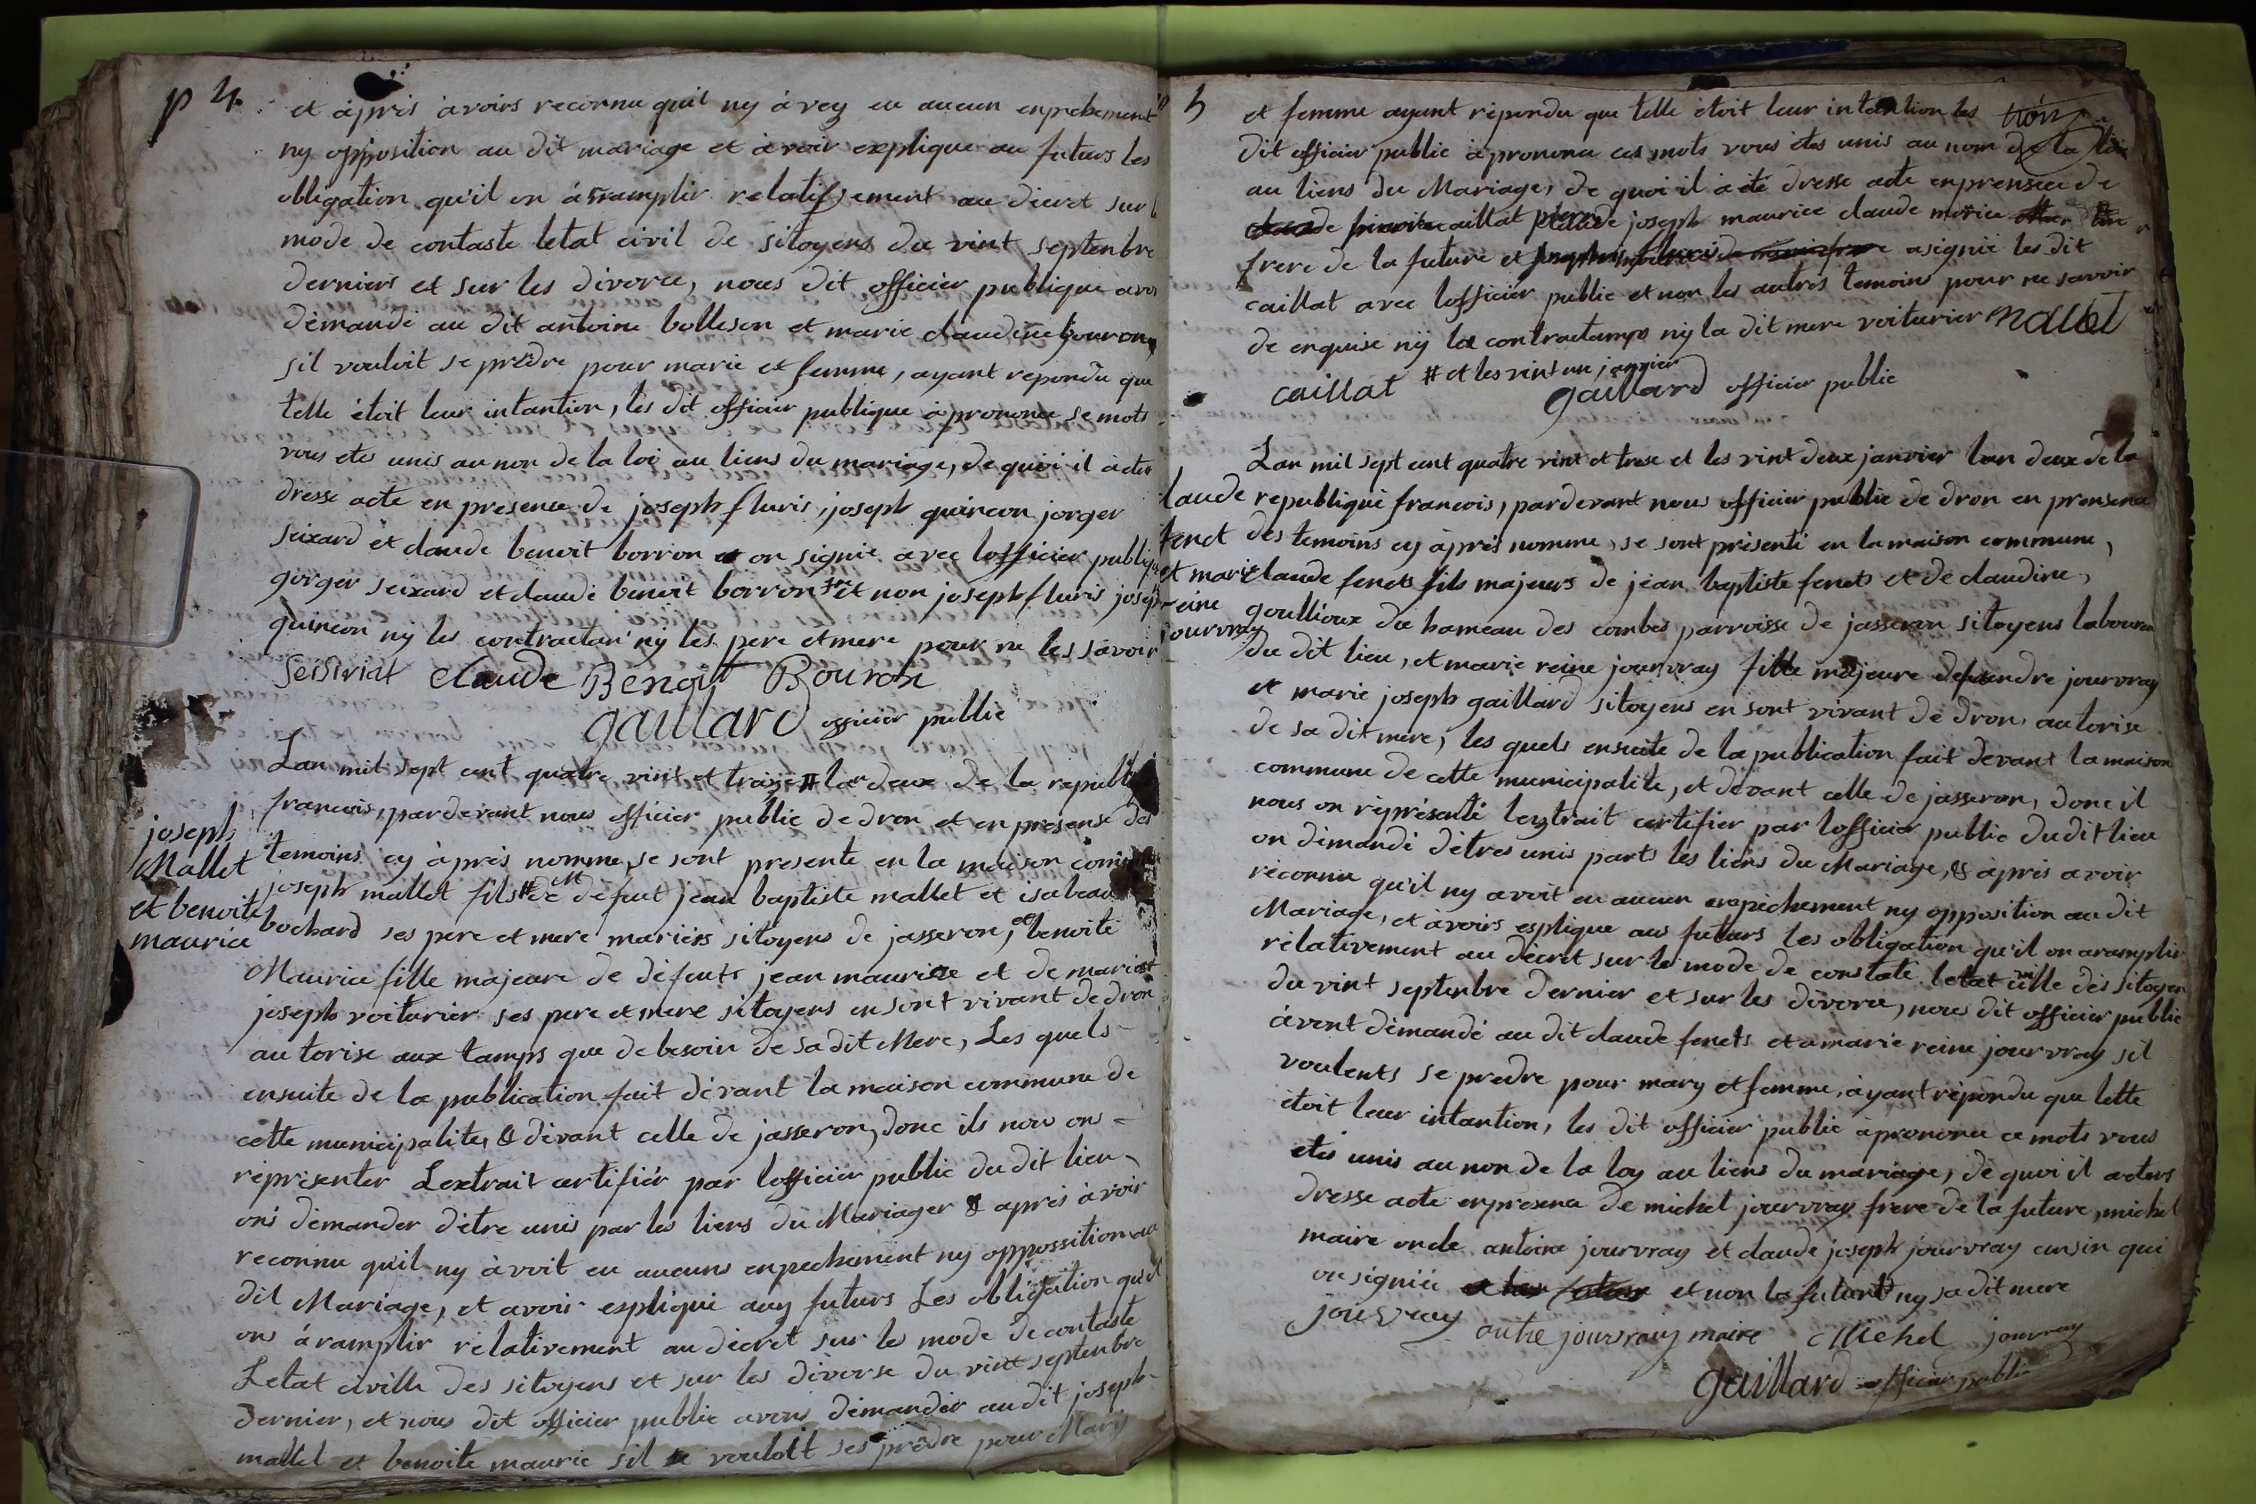 p 4.
et àpris àvoirs reconnu quil ny àvez eu aucun enpechement
ny opposition au dit mariage et àvoir explique au futurs les
obligation qu'il on àramplir relatifsement au dicret sur l
mode de contaste letat civil de sitoyens du vint septenbre
derniers et sur les divorce, nous dit officier publique avo
dèmandè au dit antoine bolleson et marie claudine
sil vouloit se prèdre pour marie et femme, ayant repondu que
telle ètoit leur intantion, lès dit officier publique à prononce se mots
vous etes unis au non de la loi au liens du mariage, de quoi il à etes
dresse acte en presence de joseph fluris, joseph quincon jorger
seixard et claude benoit borron on signie avec lofficier publiq
gorger seixard et claude benoit borron et non joseph fluris josep
quincon ny les contractan ny les pere et mere pour ne les savoir
claude Benoit Bouron
gaillard officier public
Lan mil sept cent quatre vint et traize # lan deux de la republi
francois, pardevant nous officier public de dron et en presense des
joseph
Mallet
et benoite
maurice
temoins cy àpres nomme, se sont presente en la maison comm
joseph mallet fils # de defeut jean baptiste mallet et isabeau
bochard ses pere et mere mariers sitoyens de jasseron, et benoite
Maurice fille majeure de dèfeuts jean maurice et de marie
joseph voiturier ses pere et mere sitoyens en sont vivant de dron
autorise aux tamps que debesoin de sa dit Mere, Les quels
ensuite de la publication fait dèvant la maison commune de
cette municipalite, & dèvant celle de jasseron, donc ils nou ons
rèprèsenter Lextrait certifièr par lofficier public du dit lieu
ons dèmander dètre unis par les liens du Mariager & après àvoir
reconnu quil ny àvoit eu aucuns enpechement ny oppossition au
dit Mariage, et avoir explique auy futurs Les obligation qu'il
ons àramplir rèlativement au dècret sur le mode de contaste
Letat civille des sitoyens et sur les diverse du vint septenbre
dernier, et nous dit officier public avons dèmandèr au dit joseph
mallet et benoite maurie sil vouloit ses prêdre pour Mary
5
et femme ayant rèpondu que telle ètoit leur intantion les
dit officier public à prononce ces mots vous ètes unis au nom de la loi
au liens du Mariage, de quoi il à ete dresse acte enprensece de
caillat pierre joseph maurice claude morice
frere de la future et asignié les dit
caillat avec lofficier public et non les autres temoins pour ne savoir
de enquise nij la contractamps nij la dit mere voiturier mallet
caillat # et les vint un janvier
gaillard officier public
Lan mil sept cent quatre vint et trese et les vint deux janvier lan deux de la
laude
fenet
et marie
reine
jourvray
republique francois, pardevant nous officier public de dron en prensence
dès temoins cy àprès nomme, se sont prèsentè en la maison commune,
claude fenets fils majeurs de jean baptiste fenets et de claudine,
goullioux du hameau des combes parroisse de jasseron sitoyens laboureu
du dit lieu, et marie reine jourvray fille majeure jourvray
et marie joseph gaillard sitoyens en sont vivant de dron, autorise
de sa dit mere, les quels ensuite de la publication fait devant la maison
commune de cette municipalite, et dèvant celle de jasseron, donc il
nous on rèprèsentè lextrait certifier par lofficier public du dit lieu
on dèmandè dètres unis parts les liens du Mariage, & àprès avoir
rèconnu qu'il ny avoit eu aucun enpèchement ny opposition au dit
Mariage, et àvoirs esplique aus futurs les obligation qu'il on aramplir
rèlativement au dècret sur le mode de constatè letat civille dès sitoyen
du vint septenbre dernier et sur les divorce, nous dit officier public
àvont dèmandè au dit claude fenets et a marie reine jourvray sil
voulents se prèdre pour mary et femme, ayant rèpondu que lette
ètoit leur intantion, les dit officier public à prononce ce mots vous
etès unis au non de la loy au liens du mariage, de quoi il aetes
dresse acte enpresence de michel jourvray frere de la future, michel
maire oncle antoine jourvray et claude joseph jourvray cusin qui
on signièè et non la future ny sa dit mere
jouvray jourvray maire Michel jouvray
gaillard officier public